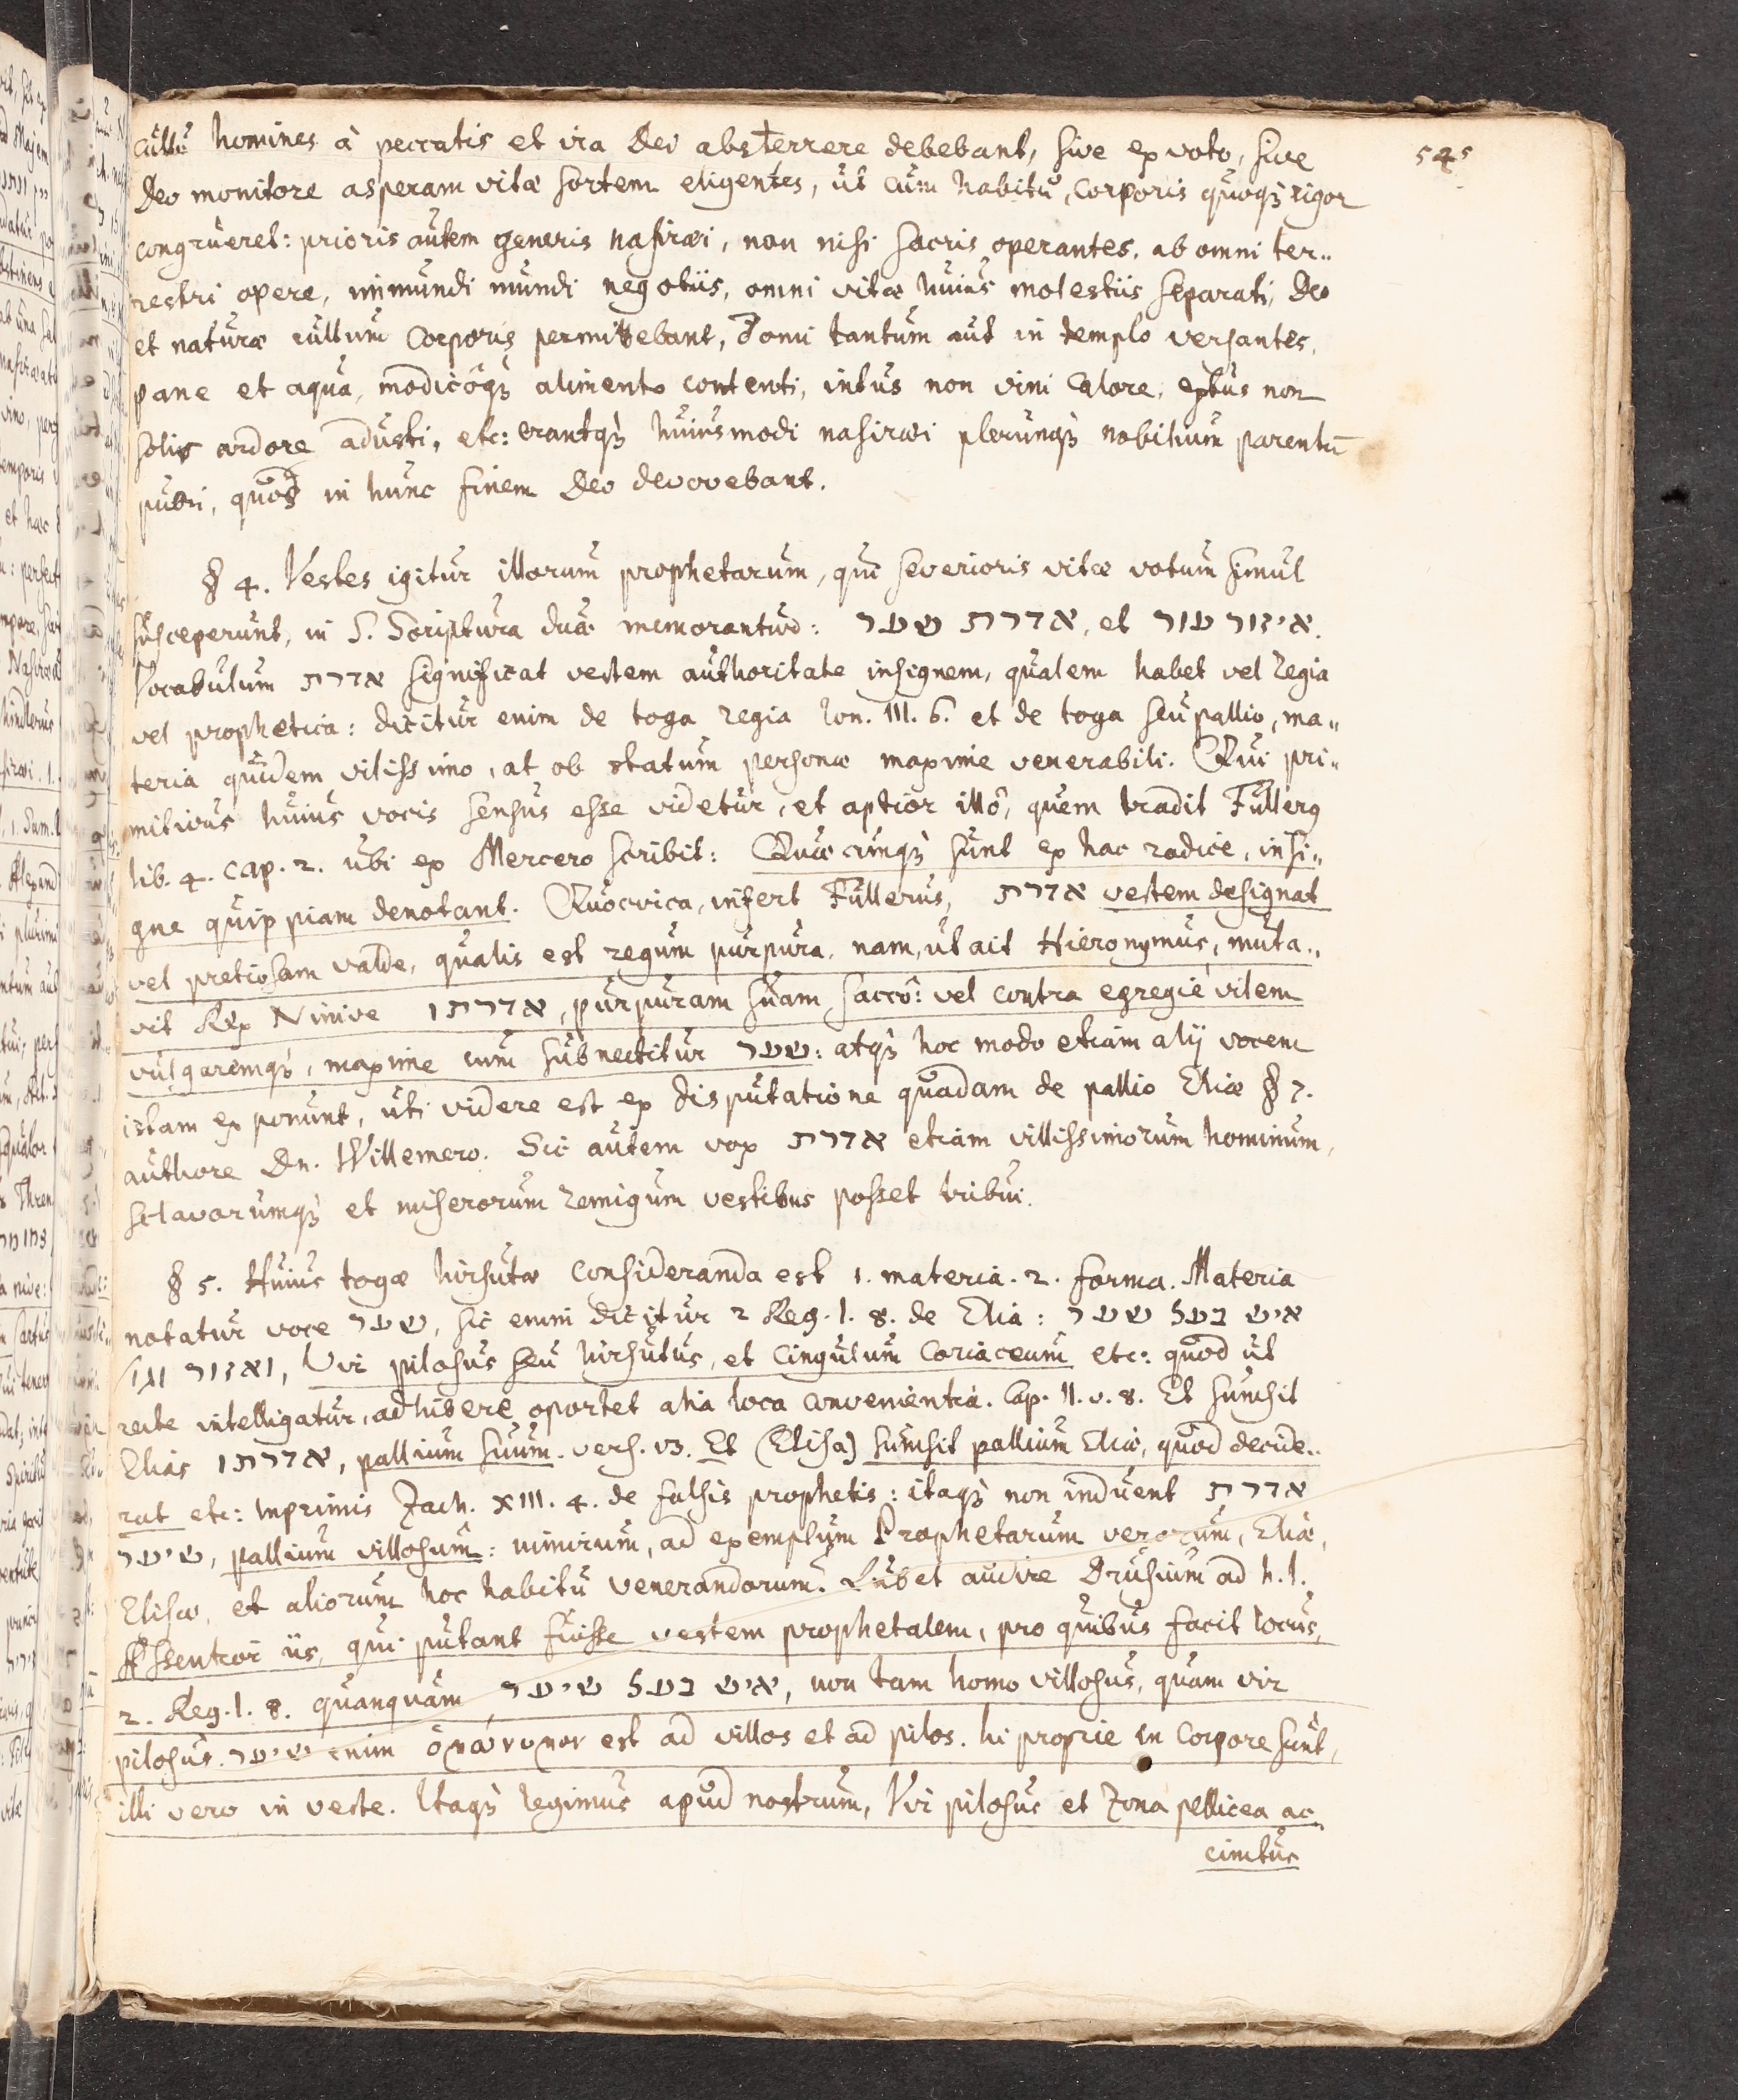 545
cultu homines à peccatis et ira Dei absterrere debebant, sive ex voto, sive
Deo monitore asperam vitæ sortem eligentes, ut cum habitu, corporis quoq; rigor
congrueret: prioris autem generis nasiræi, non nisi sacris operantes, ab omni ter„
restri opere, immundi mundi negotiis, omni vitæ huius molestiis separati, Deo
et naturæ cultum corporis permittebant, domi tantum aut in templo versantes,
pane et aqua, modicôq; alimento contenti, intus non vini calore, extus non
solis ardore adusti, etc: erantq; huiusmodi nasiræi plerunq; nobilium parentū
pueri, quos in hunc finem Deo devovebant.
§ 4. Vestes igitur illorum prophetarum, qui severioris vitæ votum simul
susceperunt, in S. Scriptura duæ memorantur: אדרת שער, et איזור עור.
Vocabulum אדרת significat vestem authoritate insignem, qualem habet vel regia
vel prophetica: dicitur enim de toga regia Ion. III. 6. et de toga seu pallio, ma„
teria quidem vilissimo, at ob statum personæ maxime venerabili. Qui pri„
mitivus huius vocis sensus esse videtur, et aptior illô, quem tradit Fullerq
lib. 4. cap. 2. ubi ex Mercero scribit: Quæcunq; sunt ex hac radice, insi„
gne quippiam denotant. Quocirca, infert Fullerus, אדרת vestem designat
vel pretiosam valde, qualis est regum purpura, nam, ut ait Hieronymus, muta„
vit Rex Ninive אדרתו, purpuram suam saccô: vel contra egregiè vilem
vulgaremq;, maxime cum subnectitur שער: atq; hoc modo etiam alij vocem
istam exponunt, uti videre est ex disputatione quadam de pallio Eliæ § 7.
authore Dn. Willemero. Sic autem vox אדרת etiam villissimorum hominum,
sclavorumq; et miserorum remigum vestibus posset tribui.
§ 5. Huius togæ hirsutæ consideranda est 1. materia. 2. forma. Materia
notatur voce שער, sic enim dicitur 2 Reg. I. 8. de Elia: איש בעל שער
ואזור וגו, Vir pilosus seu hirsutus, et cingulum coriaceum etc: quod ut
recte intelligatur, adhibere oportet alia loca convenientia. Cap. II. v. 8. Et sumsit
Elias אדרתו, pallium suum. vers. 13. Et (Elisa) sumsit pallium Eliæ, quod decide„
rat etc: Inprimis Zach. XIII. 4. de falsis prophetis: itaq; non induent אדרת
שיער, pallium villosum: nimirum, ad exemplum Prophetarum verorum, Eliæ,
Elisæ, et aliorum hoc habitu venerandorum. Lubet audire Drusium ad h. l.
Assentior iis, qui putant fuisse vestem prophetalem, pro quibus facit locus,
2. Reg. I. 8. quanquam איש בעל שיער, non tam homo villosus, quam vir
pilosus. שיער enim ὁμώνυμον est ad villos et ad pilos. hi proprie in corpore sunt,
illi vero in veste. Itaq; legimus apud nostrum, Vir pilosus et Zona pellicea ac„
cinctus